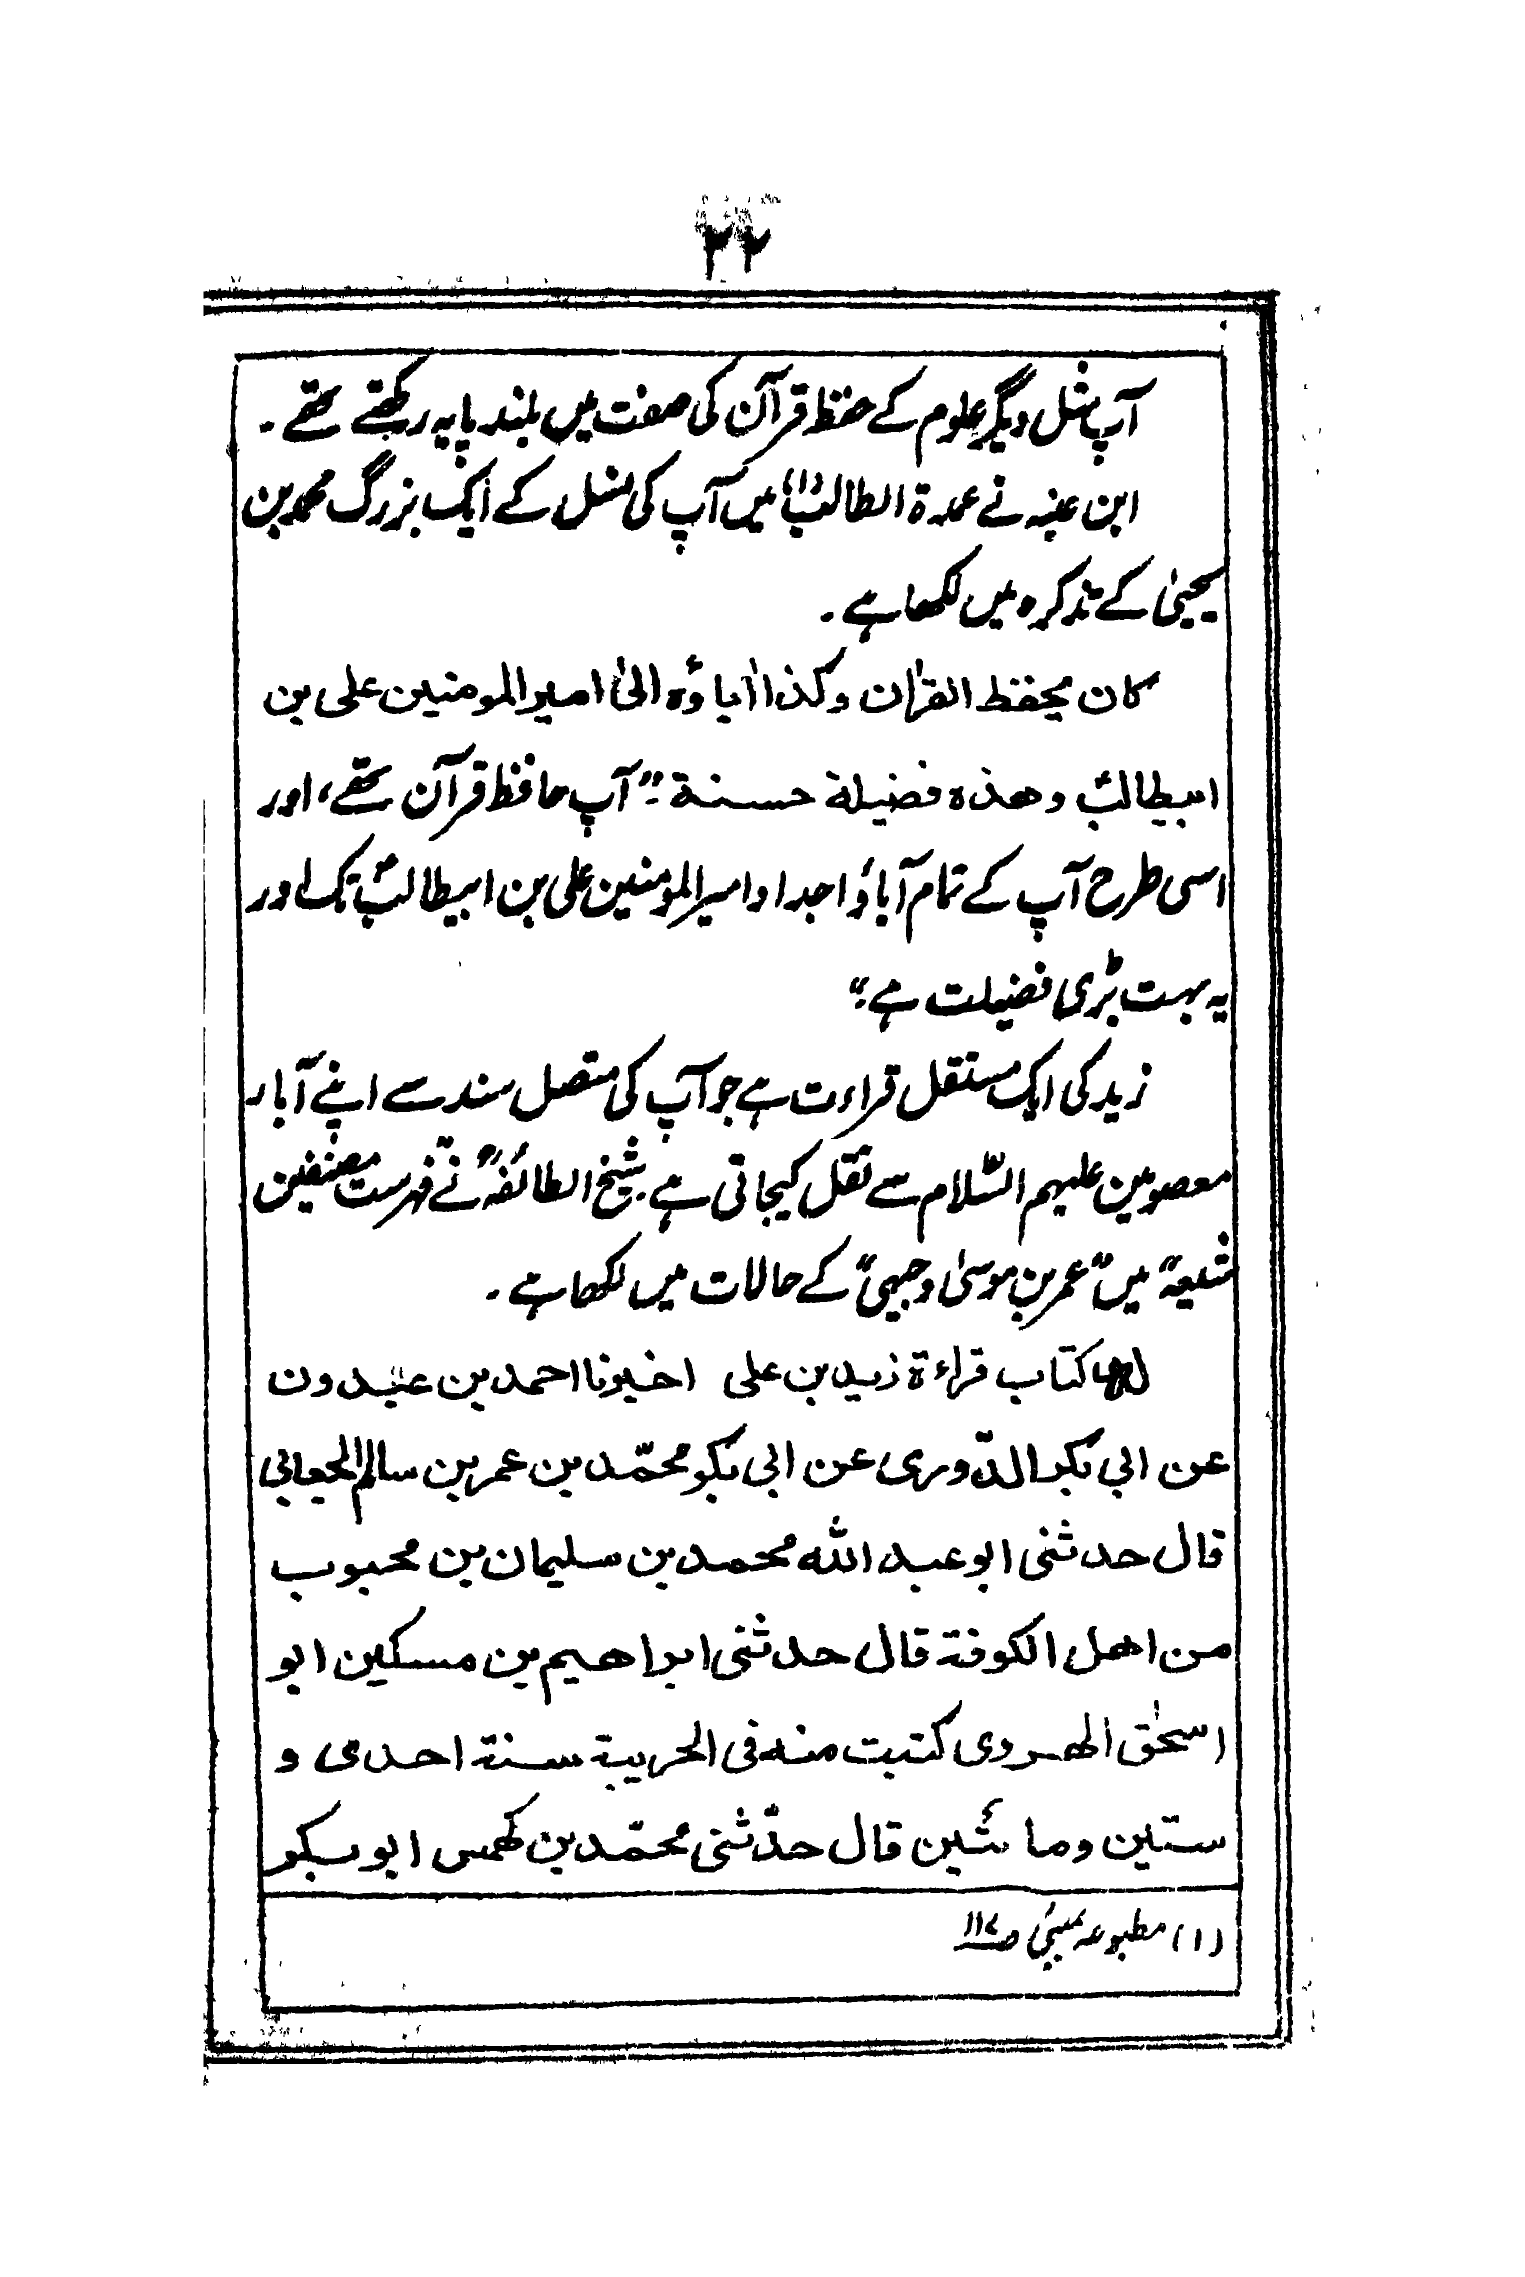 ۲۲
آپ مثل دیگر علوم کے حفظ قرآن کی صفت میں بلند پایہ رکھتے تھے۔
ابن عنبہ نے عمدۃ الطالب(۱) میں آپ کی نسل کے ایک بزرگ محمد بن
یحییٰ کے تذکرہ میں لکھا ہے۔
کان یحفظ القرٰان وکذا اٰباؤہ الیٰ امیرالمومنین علی بن
ابیطالبؑ وھذہ فضیلۃ حسنۃ۔" "آپ حافظ قرآن تھے، اور
اسی طرح آپ کے تمام آباؤ اجداد امیرالمومنین علی بن ابیطالبؑ تک اور
یہ بہت بڑی فضیلت ہے۔"
زید کی ایک مستقل قراءت ہے جو آپ کی متصل سند سے اپنے آباء
معصومین علیہم السّلام سے نقل کیجاتی ہے۔ شیخ الطائفہؒ نے فہرست مصنفین
شیعہ" میں "عمر بن موسیٰ وجیہی" کے حالات میں لکھا ہے۔
کتاب قراءۃ زید بن علی اخبرنا احمد بن عبدون
عن ابی بکر الدّوری عن ابی بکر محمّد بن عمر بن سالم الجعابی
قال حدثنی ابو عبد اللہ محمد بن سلیمان بن محبوب
من اھل الکوفۃ قال حدثنی ابراھیم بن مسکین ابو
اسحٰق الھروی کتبت منہ فی الحربیۃ سنۃ احدی و
ستین ومائتین قال حدّثنی محمّد بن کھمس ابو بکر
(۱) مطبوعہ بمبئی ص۱۱۷